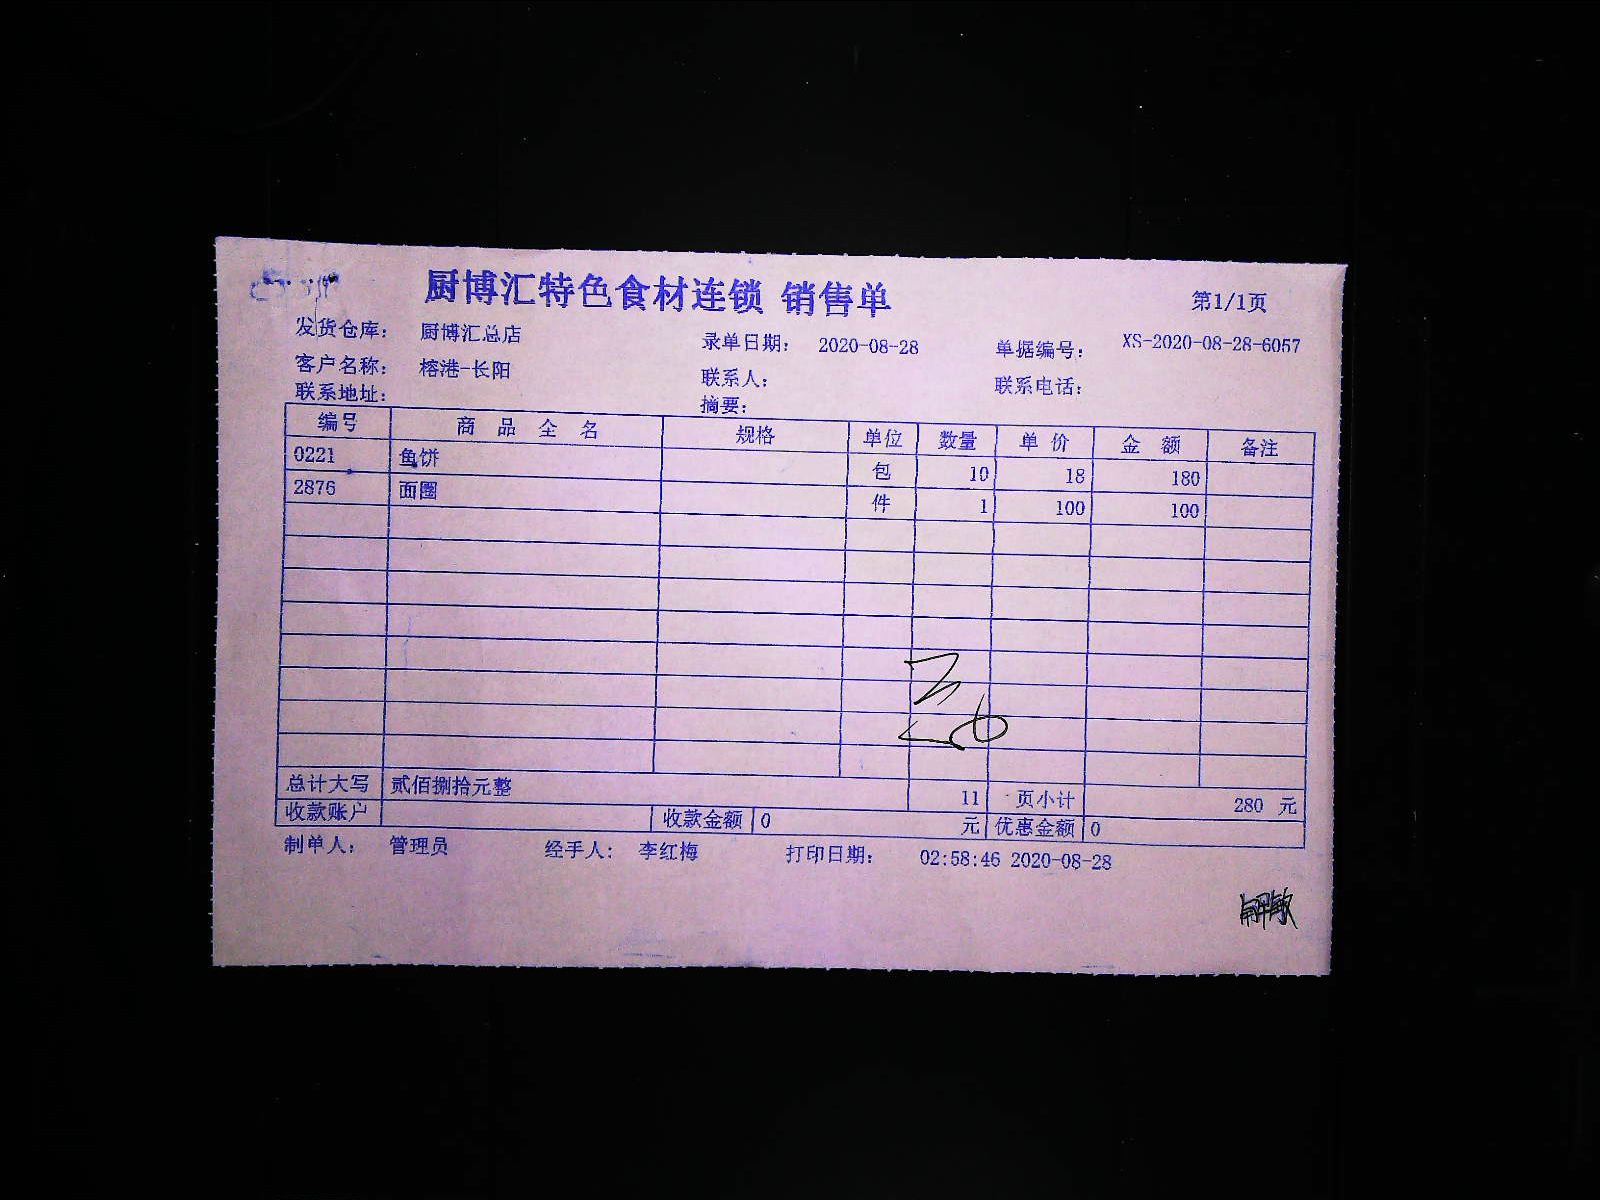 厨博汇特色食材连锁 销售单
第1/1页
发货仓库： 厨博汇总店 录单日期： 2020-08-28 单据编号： XS-2020-08-28-6057
客户名称： 榕港-长阳 联系人： 联系电话：
联系地址： 摘要：
编号 商品全名 规格 单位 数量 单价 金额 备注
0221 鱼饼 包 10 18 180
2876 面圈 件 1 100 100
总计大写 贰佰捌拾元整 11 页小计 280 元
收款账户 收款金额 0 元 优惠金额 0
制单人： 管理员 经手人： 李红梅 打印日期： 02:58:46 2020-08-28